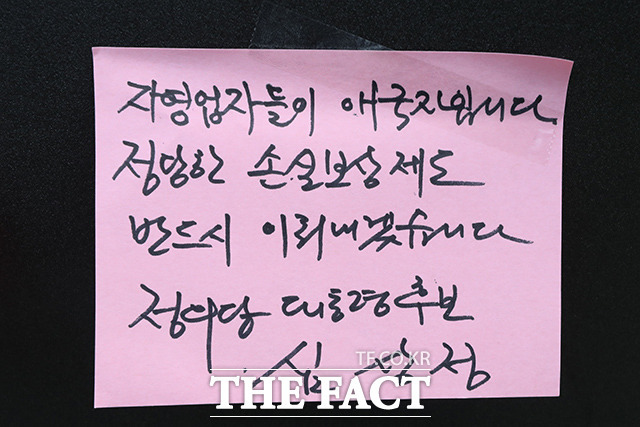 자영업자들이 애국자입니다
정당한 손실보상 제도
반드시 이뤄내겠습니다
정의당 대통령후보
심상정
TF.CO.KR
THE FACT